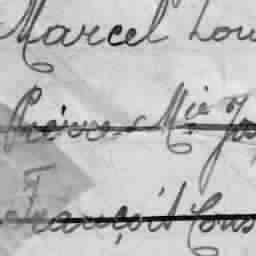 Marcel Lou
Pierre Mie Jo
François Cons